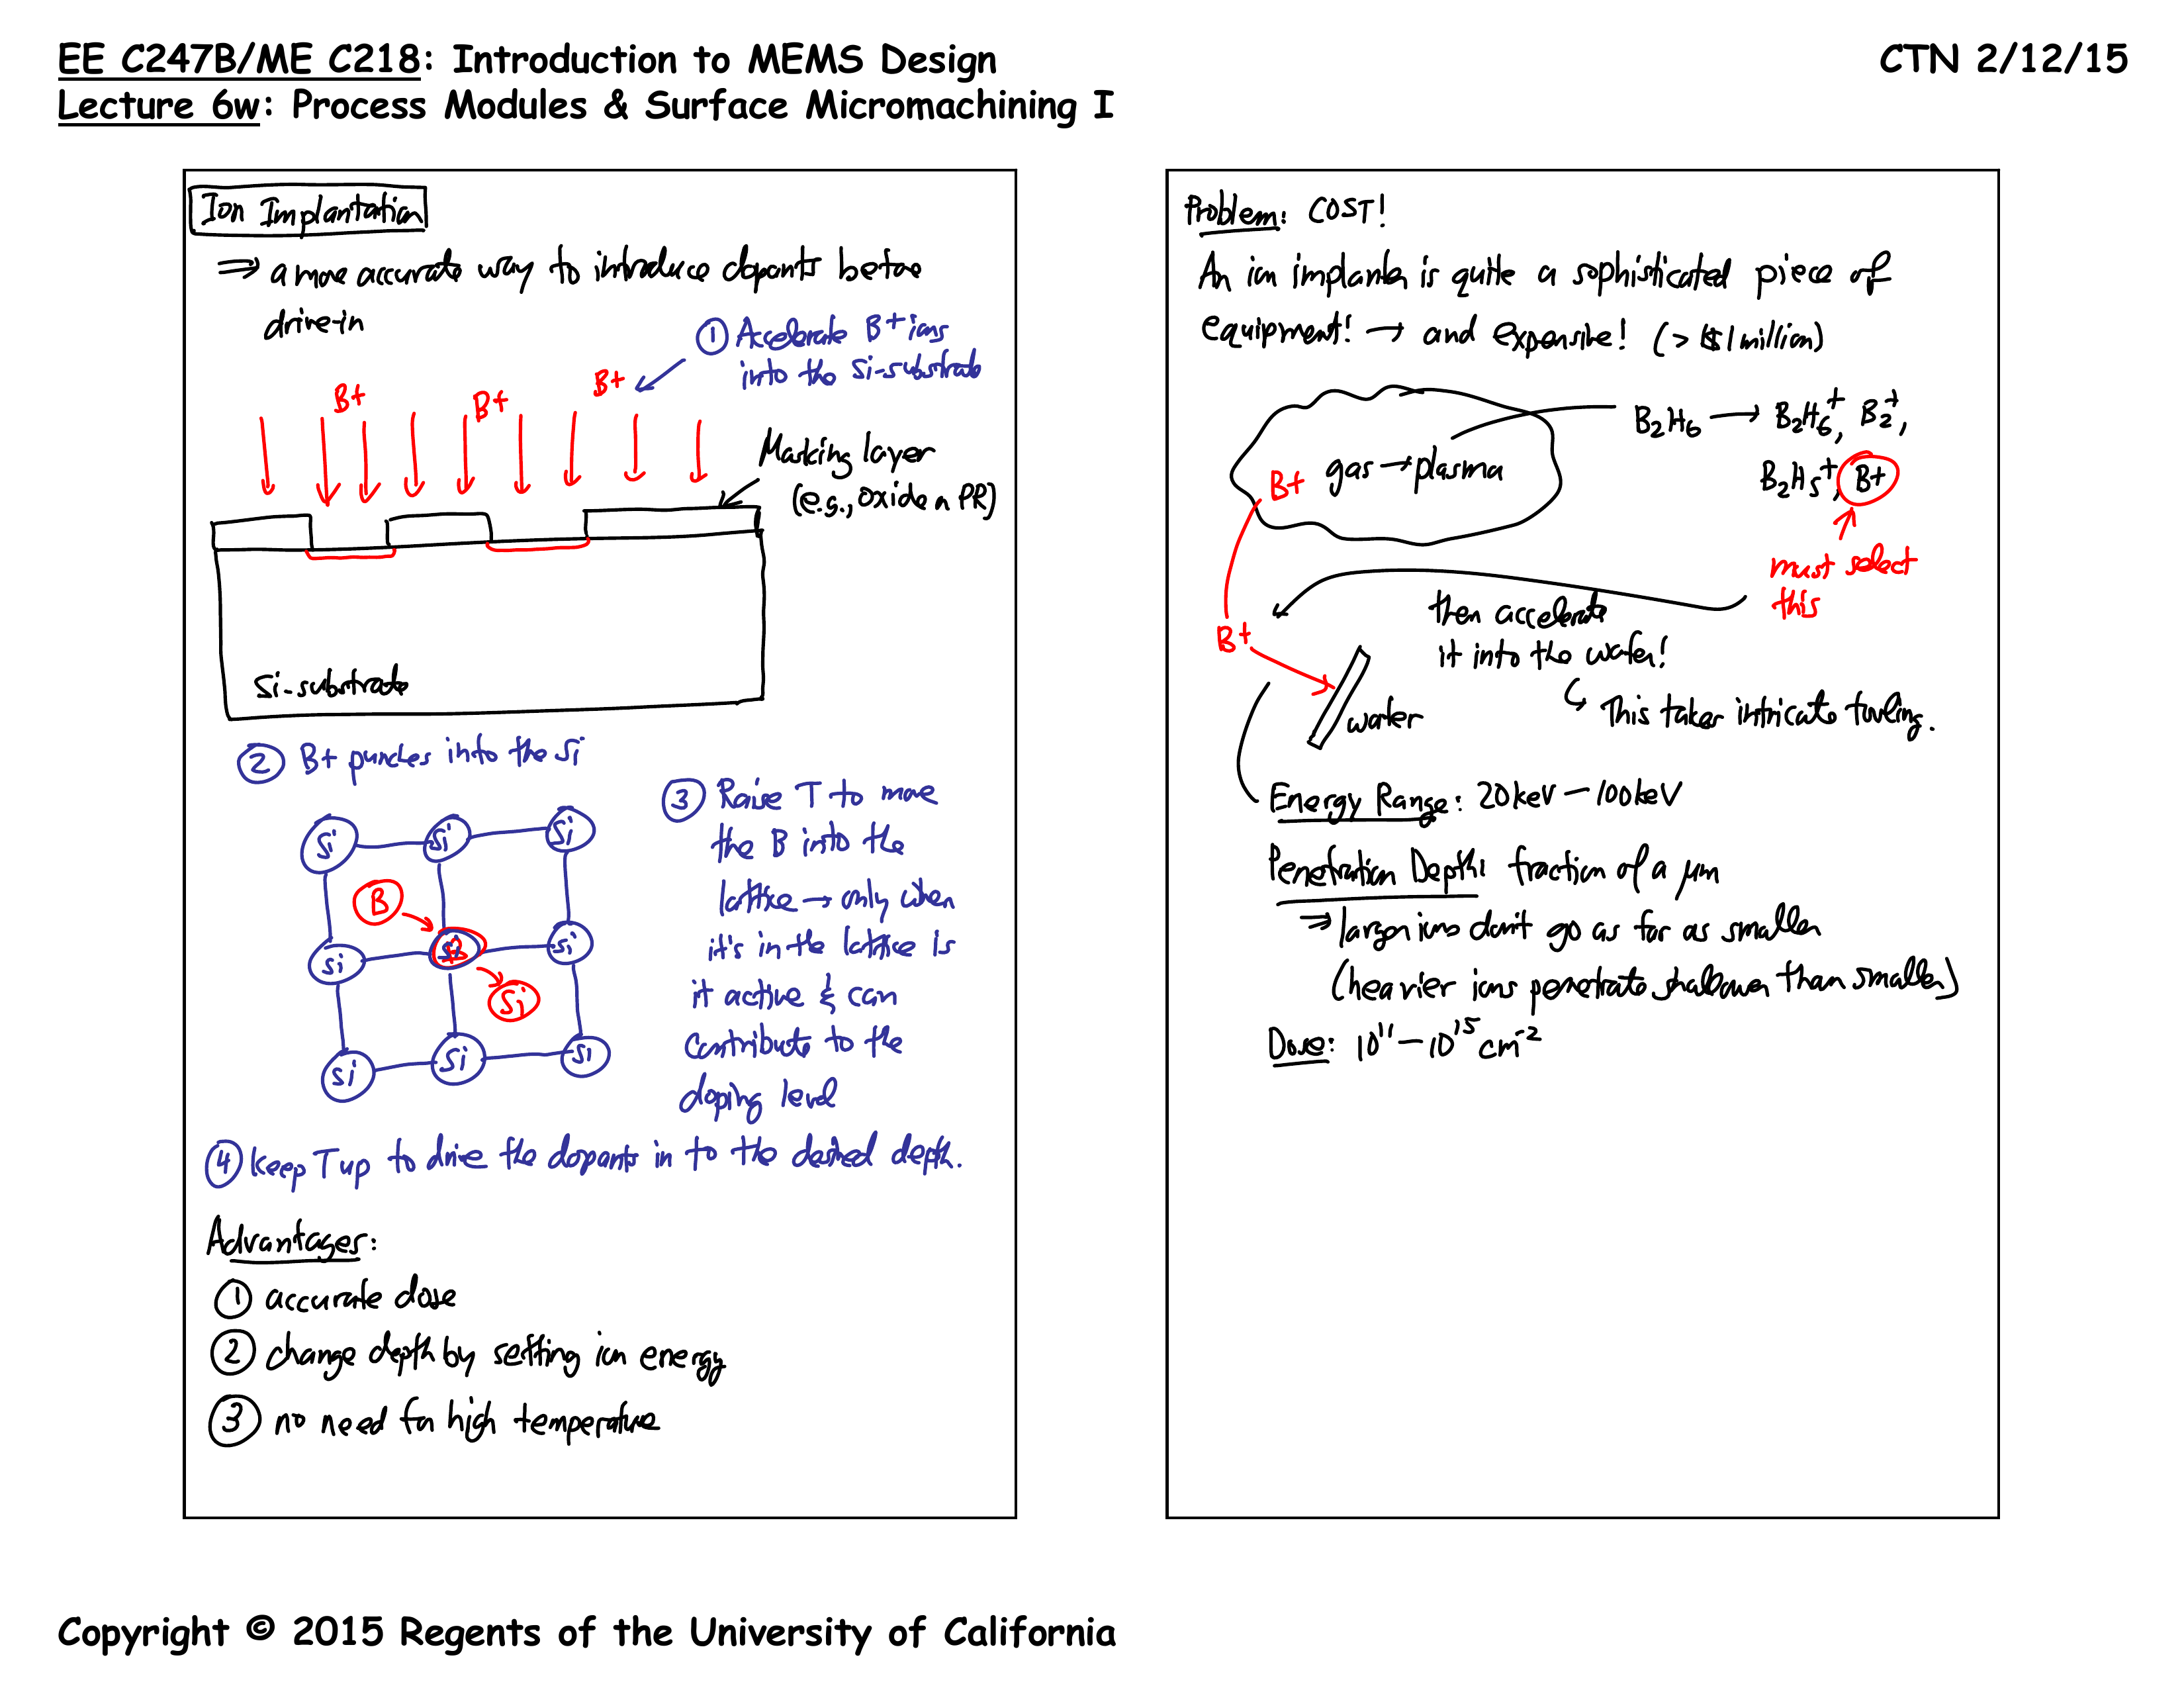 EE C247B/ME C218: Introduction to MEMS Design
CTN 2/12/15
Lecture 6w: Process Modules & Surface Micromachining I
Ion Implantation
⇒ a more accurate way to introduce dopants before
drive-in
① Accelerate B+ ions
into the Si-substrate
B+ B+ B+
Masking layer
(e.g., oxide or PR)
Si-substrate
② B+ punches into the Si
Si Si Si
B
Si Si B Si
Si
Si Si Si
③ Raise T to move
the B into the
lattice → only when
it's in the lattice is
it active & can
contribute to the
doping level
④ Keep T up to drive the dopants in to the desired depth.
Advantages:
① accurate dose
② change depth by setting ion energy
③ no need for high temperature
Problem: COST!
An ion implanter is quite a sophisticated piece of
equipment! → and expensive! (> $1 million)
B₂H₆ → B₂H₆⁺, B₂⁺,
B₂H₅⁺, B+
B+ gas → plasma
must select
this
then accelerate
it into the wafer!
B+
↳ This takes intricate tooling.
wafer
Energy Range: 20keV – 100keV
Penetration Depth: fraction of a μm
⇒ larger ions don't go as far as smaller
(heavier ions penetrate shallower than smaller)
Dose: 10¹¹ – 10¹⁵ cm⁻²
Copyright © 2015 Regents of the University of California